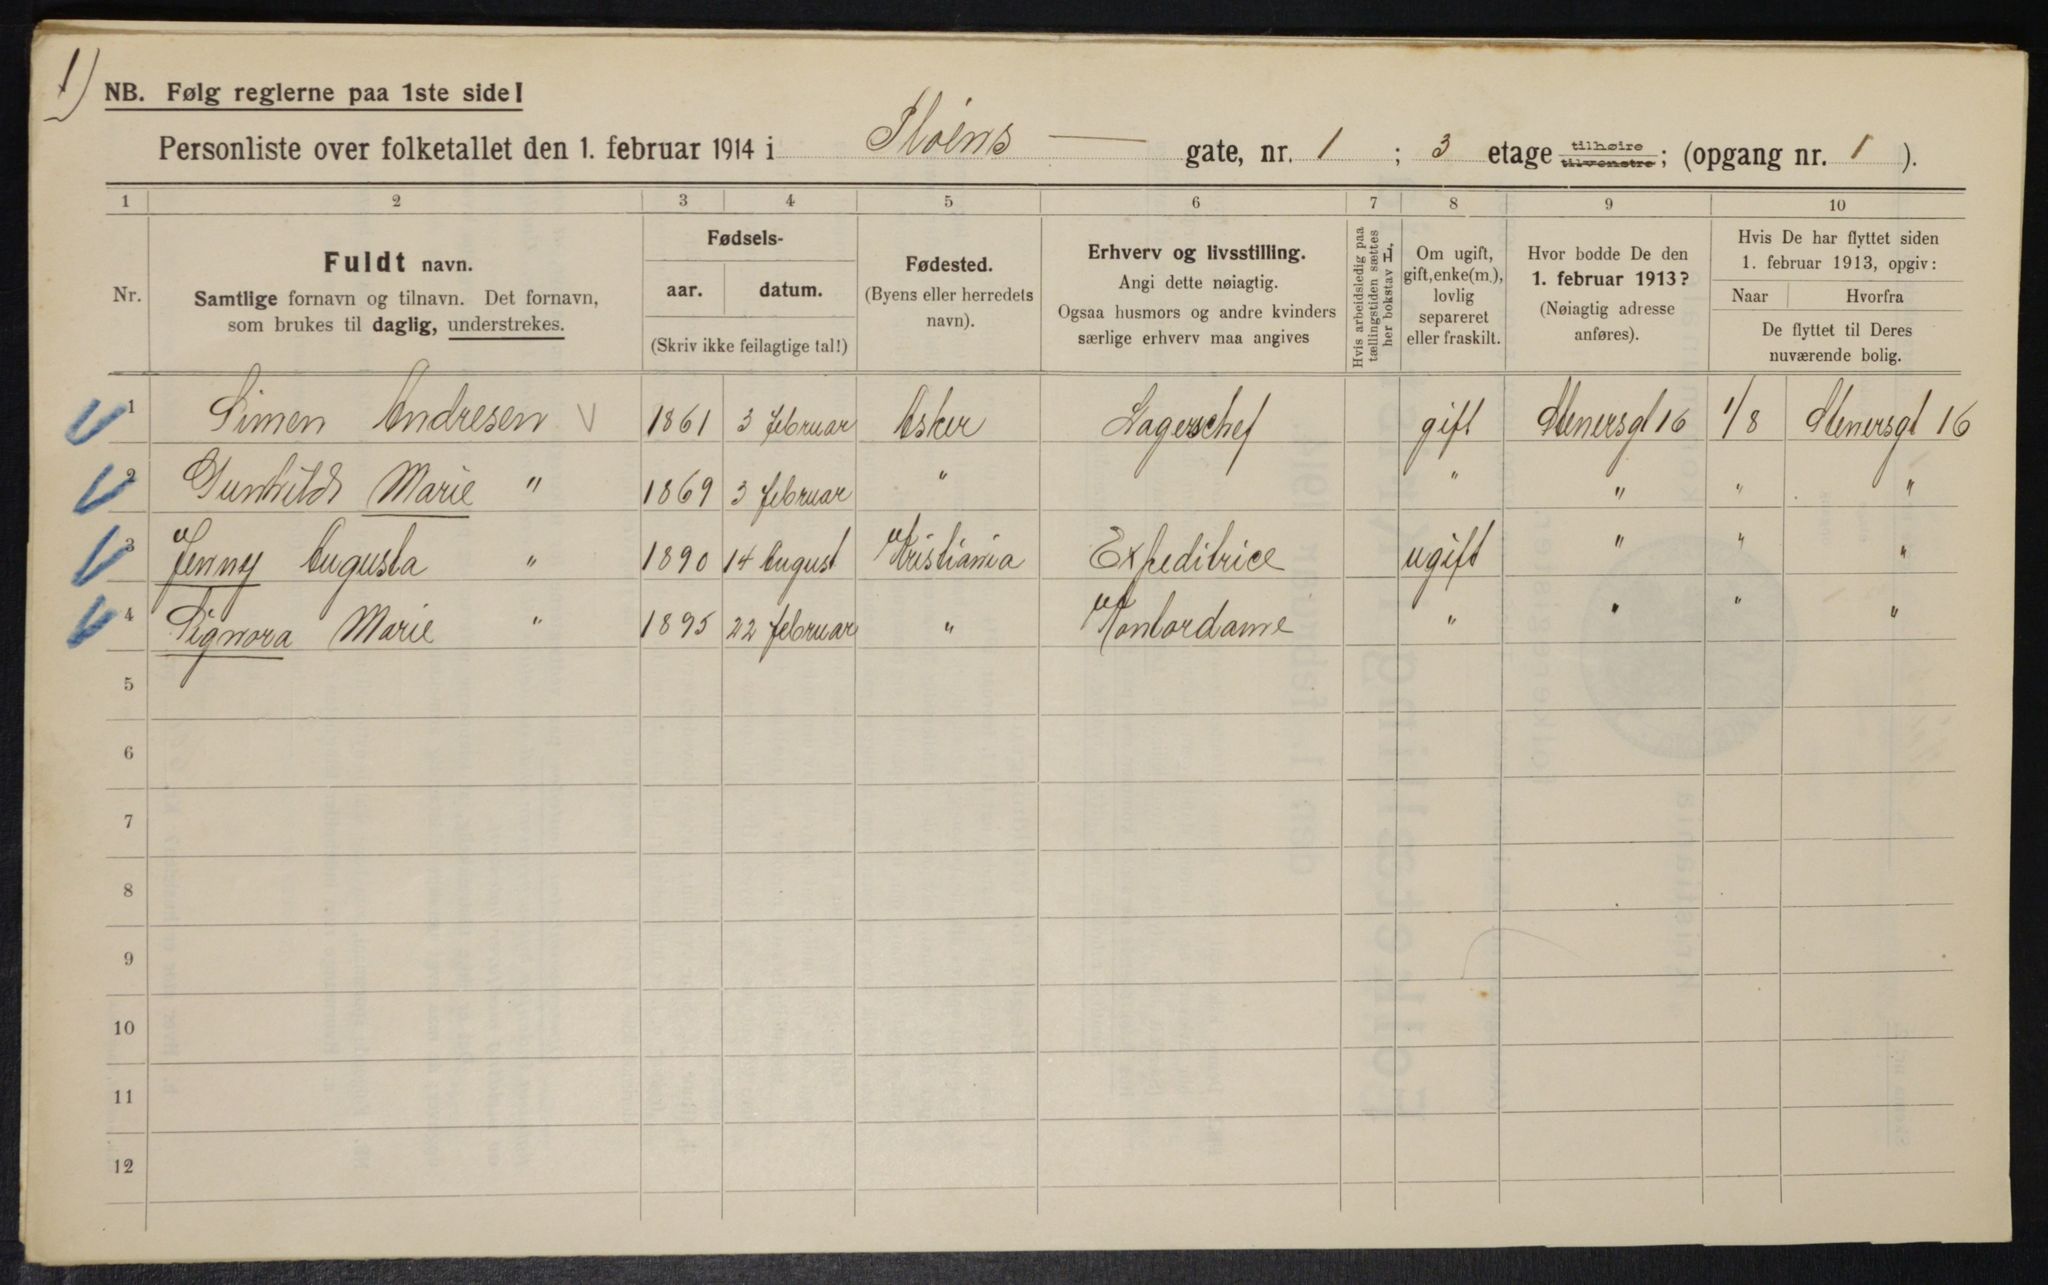 1)
NB. Følg reglerne paa 1ste side!
Personliste over folketallet den 1. februar 1914 i Pløens — gate, nr. 1 ; 3 etage tilhøire tilvenstre ; (opgang nr. 1 ).
1 2 3 4 5 6 7 8 9 10
Nr.
Fuldt navn.
Samtlige fornavn og tilnavn. Det fornavn,
som brukes til daglig, understrekes.
Fødsels-
aar. datum.
(Skriv ikke feilagtige tal!)
Fødested.
(Byens eller herredets
navn).
Erhverv og livsstilling.
Angi dette nøiagtig.
Ogsaa husmors og andre kvinders
særlige erhverv maa angives
Hvis arbeidsledig paa
tællingstiden sættes
her bokstav L.
Om ugift,
gift, enke(m.),
lovlig
separeret
eller fraskilt.
Hvor bodde De den
1. februar 1913?
(Nøiagtig adresse
anføres).
Hvis De har flyttet siden
1. februar 1913, opgiv:
Naar Hvorfra
De flyttet til Deres
nuværende bolig.
1 Simen Andresen 1861 3 februar Asker Lagerschef gift Stenersgt 16 1/8 Stenersgt 16
2 Gunhild Marie " 1869 3 februar " " " " "
3 Jenny Augusta " 1890 14 August Kristiania Expeditrice ugift " " "
4 Signora Marie " 1895 22 februar " Kontordame " " " "
5
6
7
8
9
10
11
12